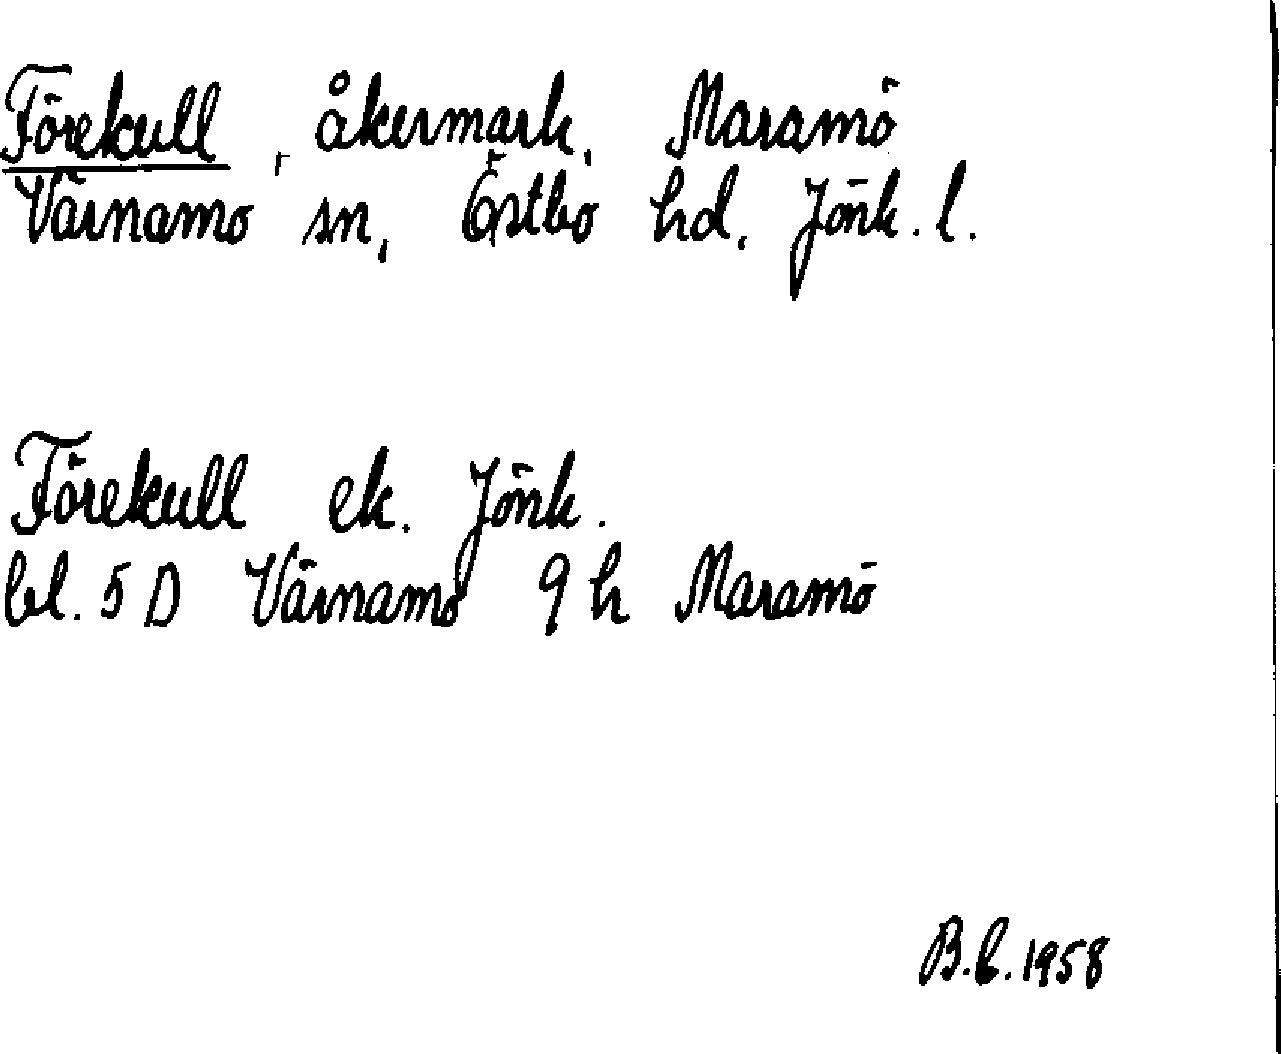 Förekull, åkermark, Maramö
Värnamo sn, Östbo hd, Jönk. l.
Förekull ek. Jönk.
bl. 5 D Värnamo 9 h Maramö
B.C. 1958